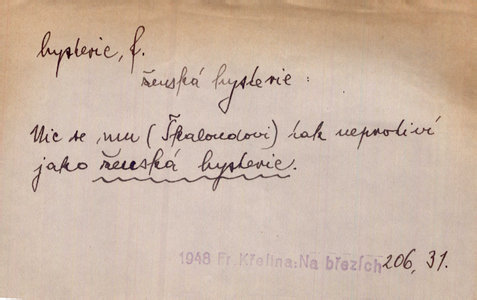 hysterie, f.
ženská hysterie:
Nic se mu (Škaloudovi) tak neprotiví
jako ženská hysterie.
1948 Fr. Křelina: Na březích 206, 31.